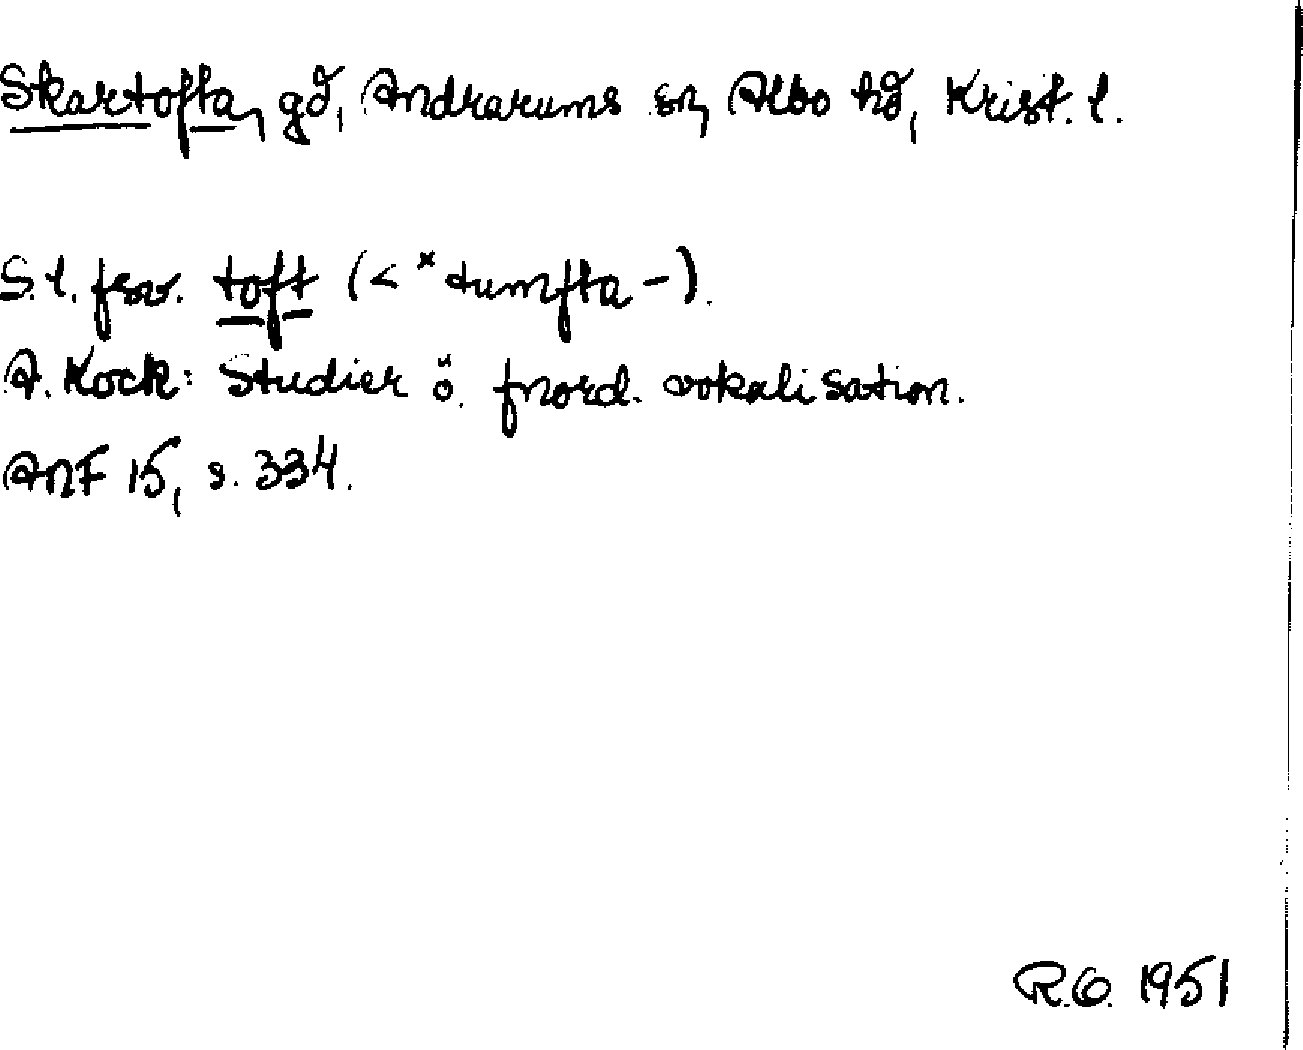 Skartofta, gd, Andrarums sn, Albo hd, Krist. l.
S. l. fsv. toft (< *tumfta-).
A. Kock: Studier ö. fnord. vokalisation.
ANF 15, s. 334.
R.O. 1951